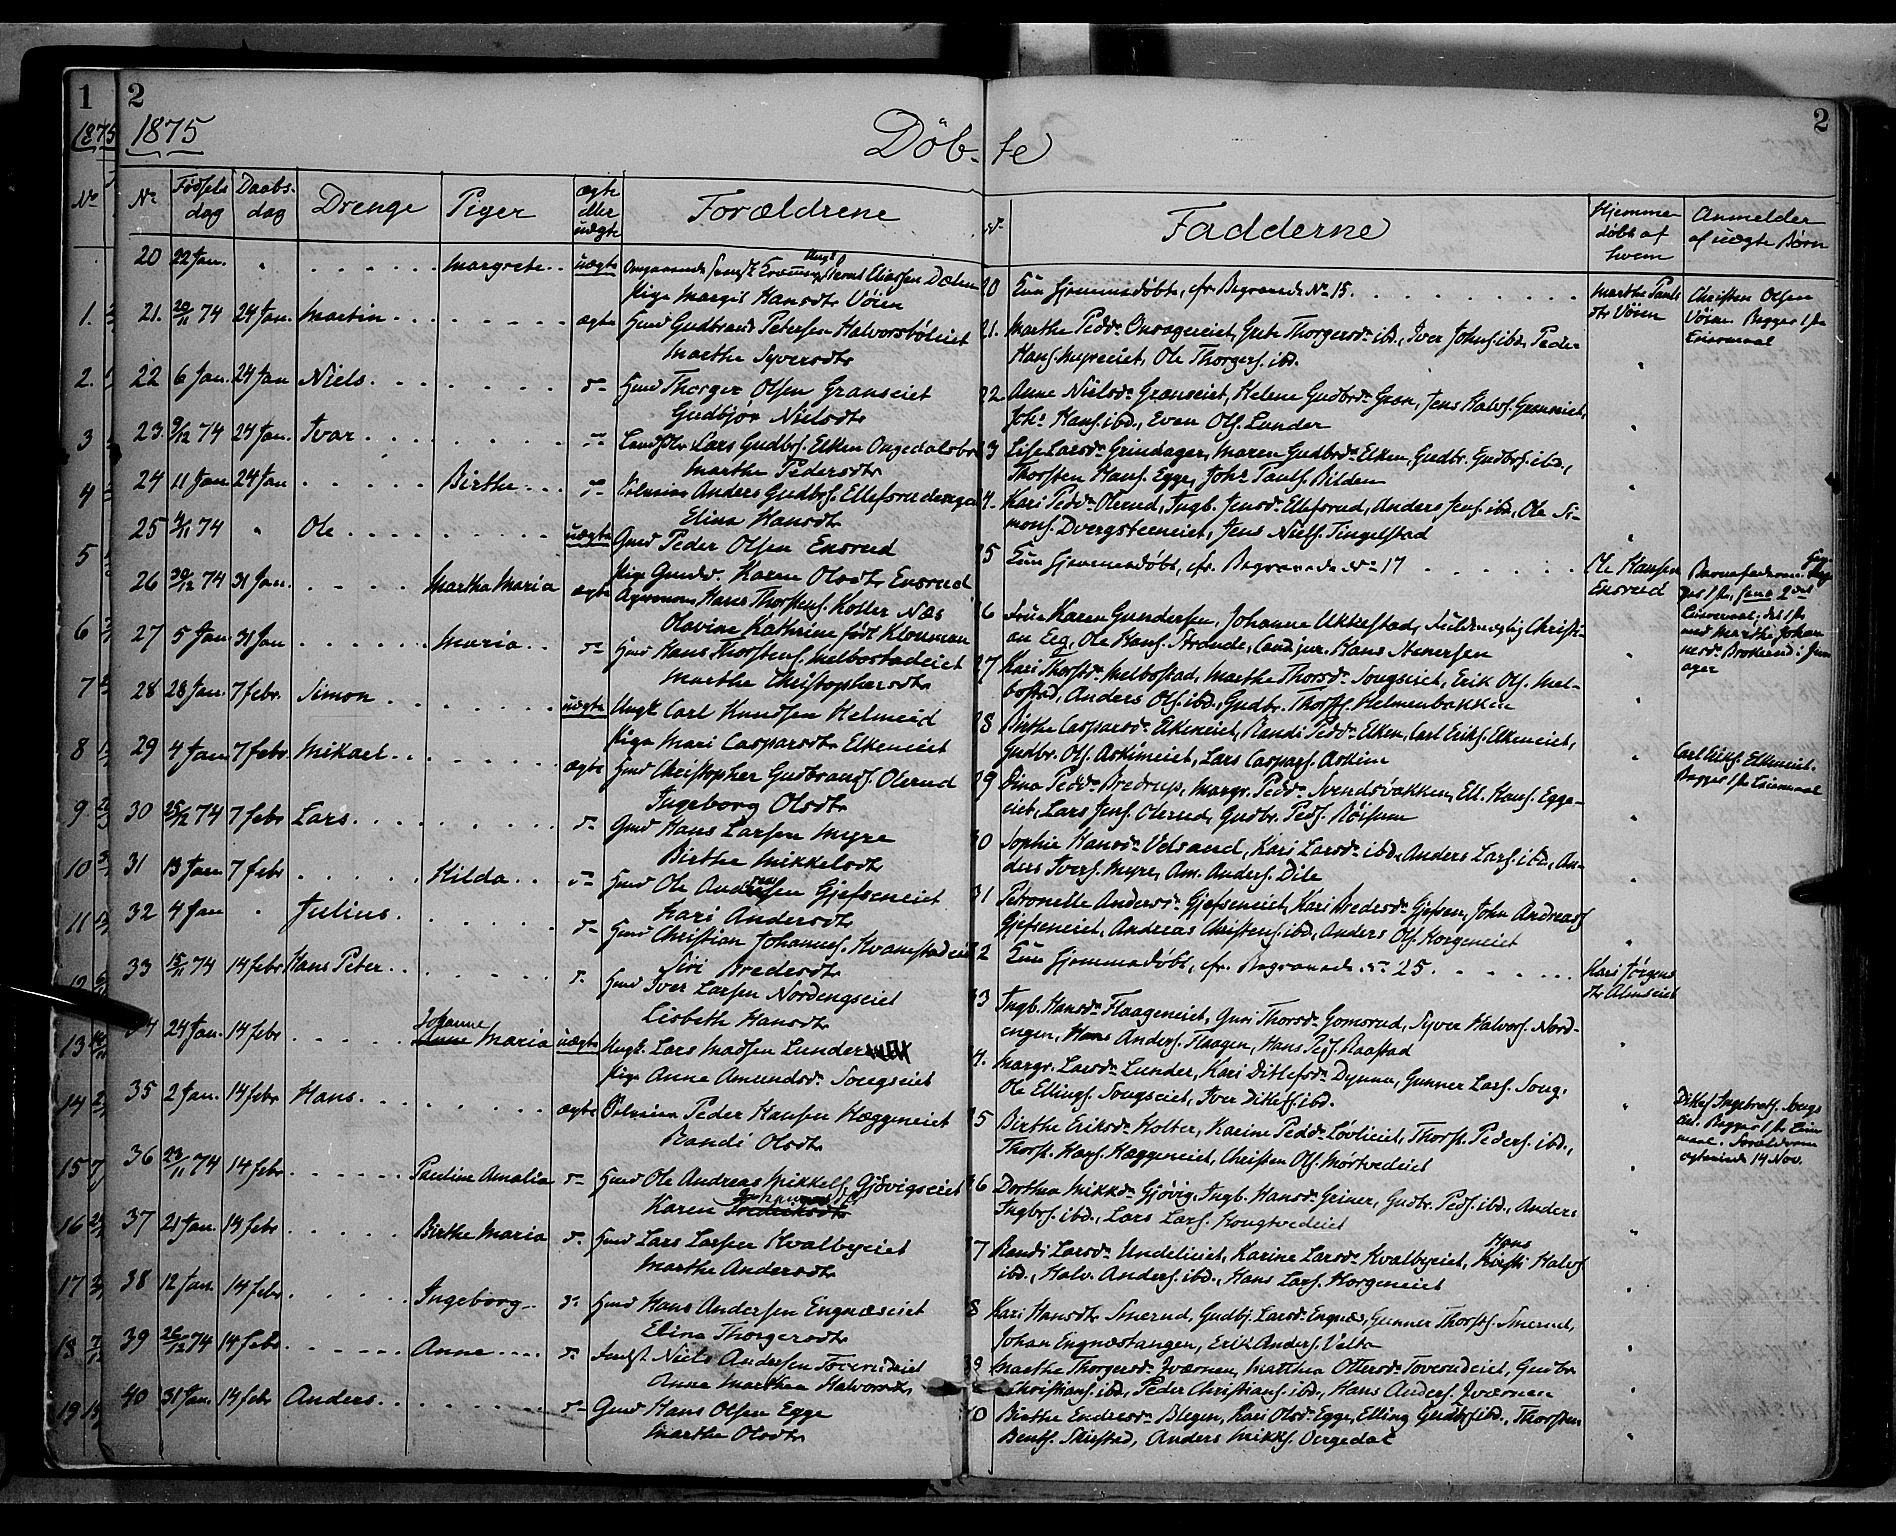 1 2 2
1875 1875
Døb-te
No No Fødsels dag Daabs- dag Drenge Piger ægte eller uægte Forældrene No Fadderne Hjemme døbt af hvem Anmelder af uægte Børn
20 22 Jan. " Margrete uægte Eliassen Dælen
Pige Margit Hansdtr Vøien
20 Hjemmedøbt, cfr. Begravede No 15. Marthe Pauls dtr Vøien Christen Olsen Vøien. Begges 1ste Leiermaal
21. 20/11 74 24 Jan. Martin ægte Hmd Gudbrand Petersen Halvorsbøleiet
Marthe Syversdtr
21. Marthe Pedd. Onsageneiet, Grete Thorgersdr ibd., Iver Johns. ibd., Peder
Hans. Myreeiet, Ole Thorgers. ibd.
22 6 Jan. 24 Jan Niels Hmd Thorger Olsen Graneiet
Gudbjør Nielsdtr
22 Anne Nielsdr Graneiet, Helene Gudbrdr Gran, Jens Halvs. Graneiet,
Johs Hans. ibd., Even Ols. Lunder
23. 9/12 74 24 Jan. Ivar Lars Gudbrs. Elken
Marthe Pedersdtr
23 Lise Larsdr Grindager, Maren Gudbrdr Elken, Gudbr. Gudbrs. ibd.,
Thorsten Hans. Egge, Johs Pauls. Bilden
24 11 Jan 24 Jan Birthe Anders Gudbrs. Ellefsrud
Elina Hansdtr
24. Kari Pedd. Olerud, Ingb. Jensdr Ellefsrud, Anders Jens. ibd., Ole Si-
mons. Dvergsteneiet, Jens Niels. Tingelstad
25 4/11 74 " Ole uægte Gmd Peder Olsen Ensrud
Pige Karen Olsdtr Ensrud
25 Hjemmedøbt, cfr. Begravede No 17 Ole Hansen Ensrud
26 30/12 74 31 Jan. Marthe Maria ægte Hans Thorstens. Koller Næs
Olavine Kathrine født Klouman
26 Frue Karen Gundersen, Johanne Ukkestad, Fuldmægtig Christi-
an Eeg, Ole Hans. Strande, Cand jur. Hans Stenersen
27 5 Jan 31 Jan Maria Hmd Hans Thorstens. Melbostadeiet
Marthe Christophersdtr
27 Kari Thorstdr Melbostad, Marthe Thorsdr Songseiet, Erik Ols. Mel-
bostad, Anders Ols. ibd., Gudbr. Thorsts. Helmenbakken
28 28 Jan 7 febr. Simon uægte Ungk. Carl Knudsen Helmeid
Pige Mari Caspersdtr Elkeneiet
28 Birthe Caspersdr Elkeneiet, Randi Peddr Elken, Carl Eriks. Elkeneiet,
Gudbr. Ols. Askimeiet, Lars Caspers. Askim
Carl Eriks. Elkeneiet. Begges 1ste Leiermaal
29 4 Jan 7 febr Mikael ægte Hmd Christopher Gudbrands. Olerud
Ingeborg Olsdtr
29 Dina Peddr Bredrup, Margr. Peddr Svendsbakken, Ell. Hans. Egge-
eiet, Lars Jens. Olerud, Gudbr. Peds. Røisum
30 25/12 74 7 febr Lars Gmd Hans Larsen Myre
Birthe Mikkelsdtr
30 Sophie Hansdr Velsand, Kari Larsdr ibd., Anders Lars. ibd., An-
ders Ivers. Myre, Am. Anders. Dile
31 13 Jan 7 febr Hilda Hmd Ole Andersen Gjefseneiet
Kari Andersdtr
31 Petronelle Andersdr Gjefseneiet, Kari Bredesdr Gjefsen, John Andreas.
Gjefseneiet, Andreas Christens. ibd., Anders Ols. Horgeneiet
32 4 Jan " Julius Hmd Christian Johannes. Kvamstadeiet
Siri Bredesdtr
32 Hjemmedøbt, cfr. Begravede No 25. Kari Jørgens dtr Almseiet
33 15/11 74 14 febr Hans Peter Hmd Iver Larsen Nordengseiet
Lisbeth Hansdtr
33 Ingb. Hansdr Flaageneiet, Guri Thorsdr Gomsrud, Syver Halvors. Nord-
engen, Hans Anders. Flaagen, Hans Peds. Raastad
34 24 Jan. 14 febr Johanne Maria uægte Ungk. Lars Madsen Lunder
Pige Anne Amundsdr Songseiet
34. Margr. Larsdr Lunder, Kari Ditlefsdr Dynna, Gunner Lars. Song.
Ole Ellings. Songseiet, Iver Ditlefs. ibd.
Ditlef Ingebrets. Songs eiet. Begges 1ste Leiermaal.
35 2 Jan. 14 febr Hans ægte Peder Hansen Hæggeneiet
Randi Olsdtr
35 Birthe Eriksdr Holter, Karine Peddr Løvlieiet, Thorst. Peders. ibd.,
Thorst. Hans. Hæggeneiet, Christen Ols. Mørtvedeiet
36 23/11 74 14 febr Pauline Amalia Hmd Ole Andreas Mikkels. Gjøvigseiet
Karen Johannesdtr
36 Dorthea Mikkdr Gjøvig, Ingb. Hansdr Griner, Gudbr. Peds. ibd., Anders
Ingbrs. ibd., Lars Lars. Hougtvedeiet
37 21 Jan. 14 febr Birthe Maria Hmd Lars Larsen Kvalbyeiet
Marthe Andersdtr
37 Randi Larsdr Undelieiet, Karine Larsdr Kvalbyeiet, Hans Halvs.
ibd., Halv. Anders. ibd., Hans Lars. Horgeneiet
38 12 Jan. 14 febr. Ingeborg Hmd Hans Andersen Engnæseiet
Elina Thorgersdtr
38 Kari Hansdtr Smerud, Gudbj. Larsdr Engnæs, Gunner Thorsts. Smerud,
Johan Engnæstangen, Erik Anders. Velta
39 26/12 74 14 febr. Anne Niels Andersen Toverudeiet
Anne Marthea Halvorsdtr
39 Marthe Thorgersdr Iværnen, Matthea Ottersdr Toverudeiet, Gudbr.
Christians. ibd., Peder Christians. ibd., Hans Anders. Iværnen
40 31 Jan. 14 febr Anders Gmd Hans Olsen Egge
Marthe Olsdtr
40 Birthe Endresdr Blegen, Kari Olsdr Egge, Elling Gudbrs. ibd., Thorsten
Bents. Skiestad, Anders Mikks. Orgedal